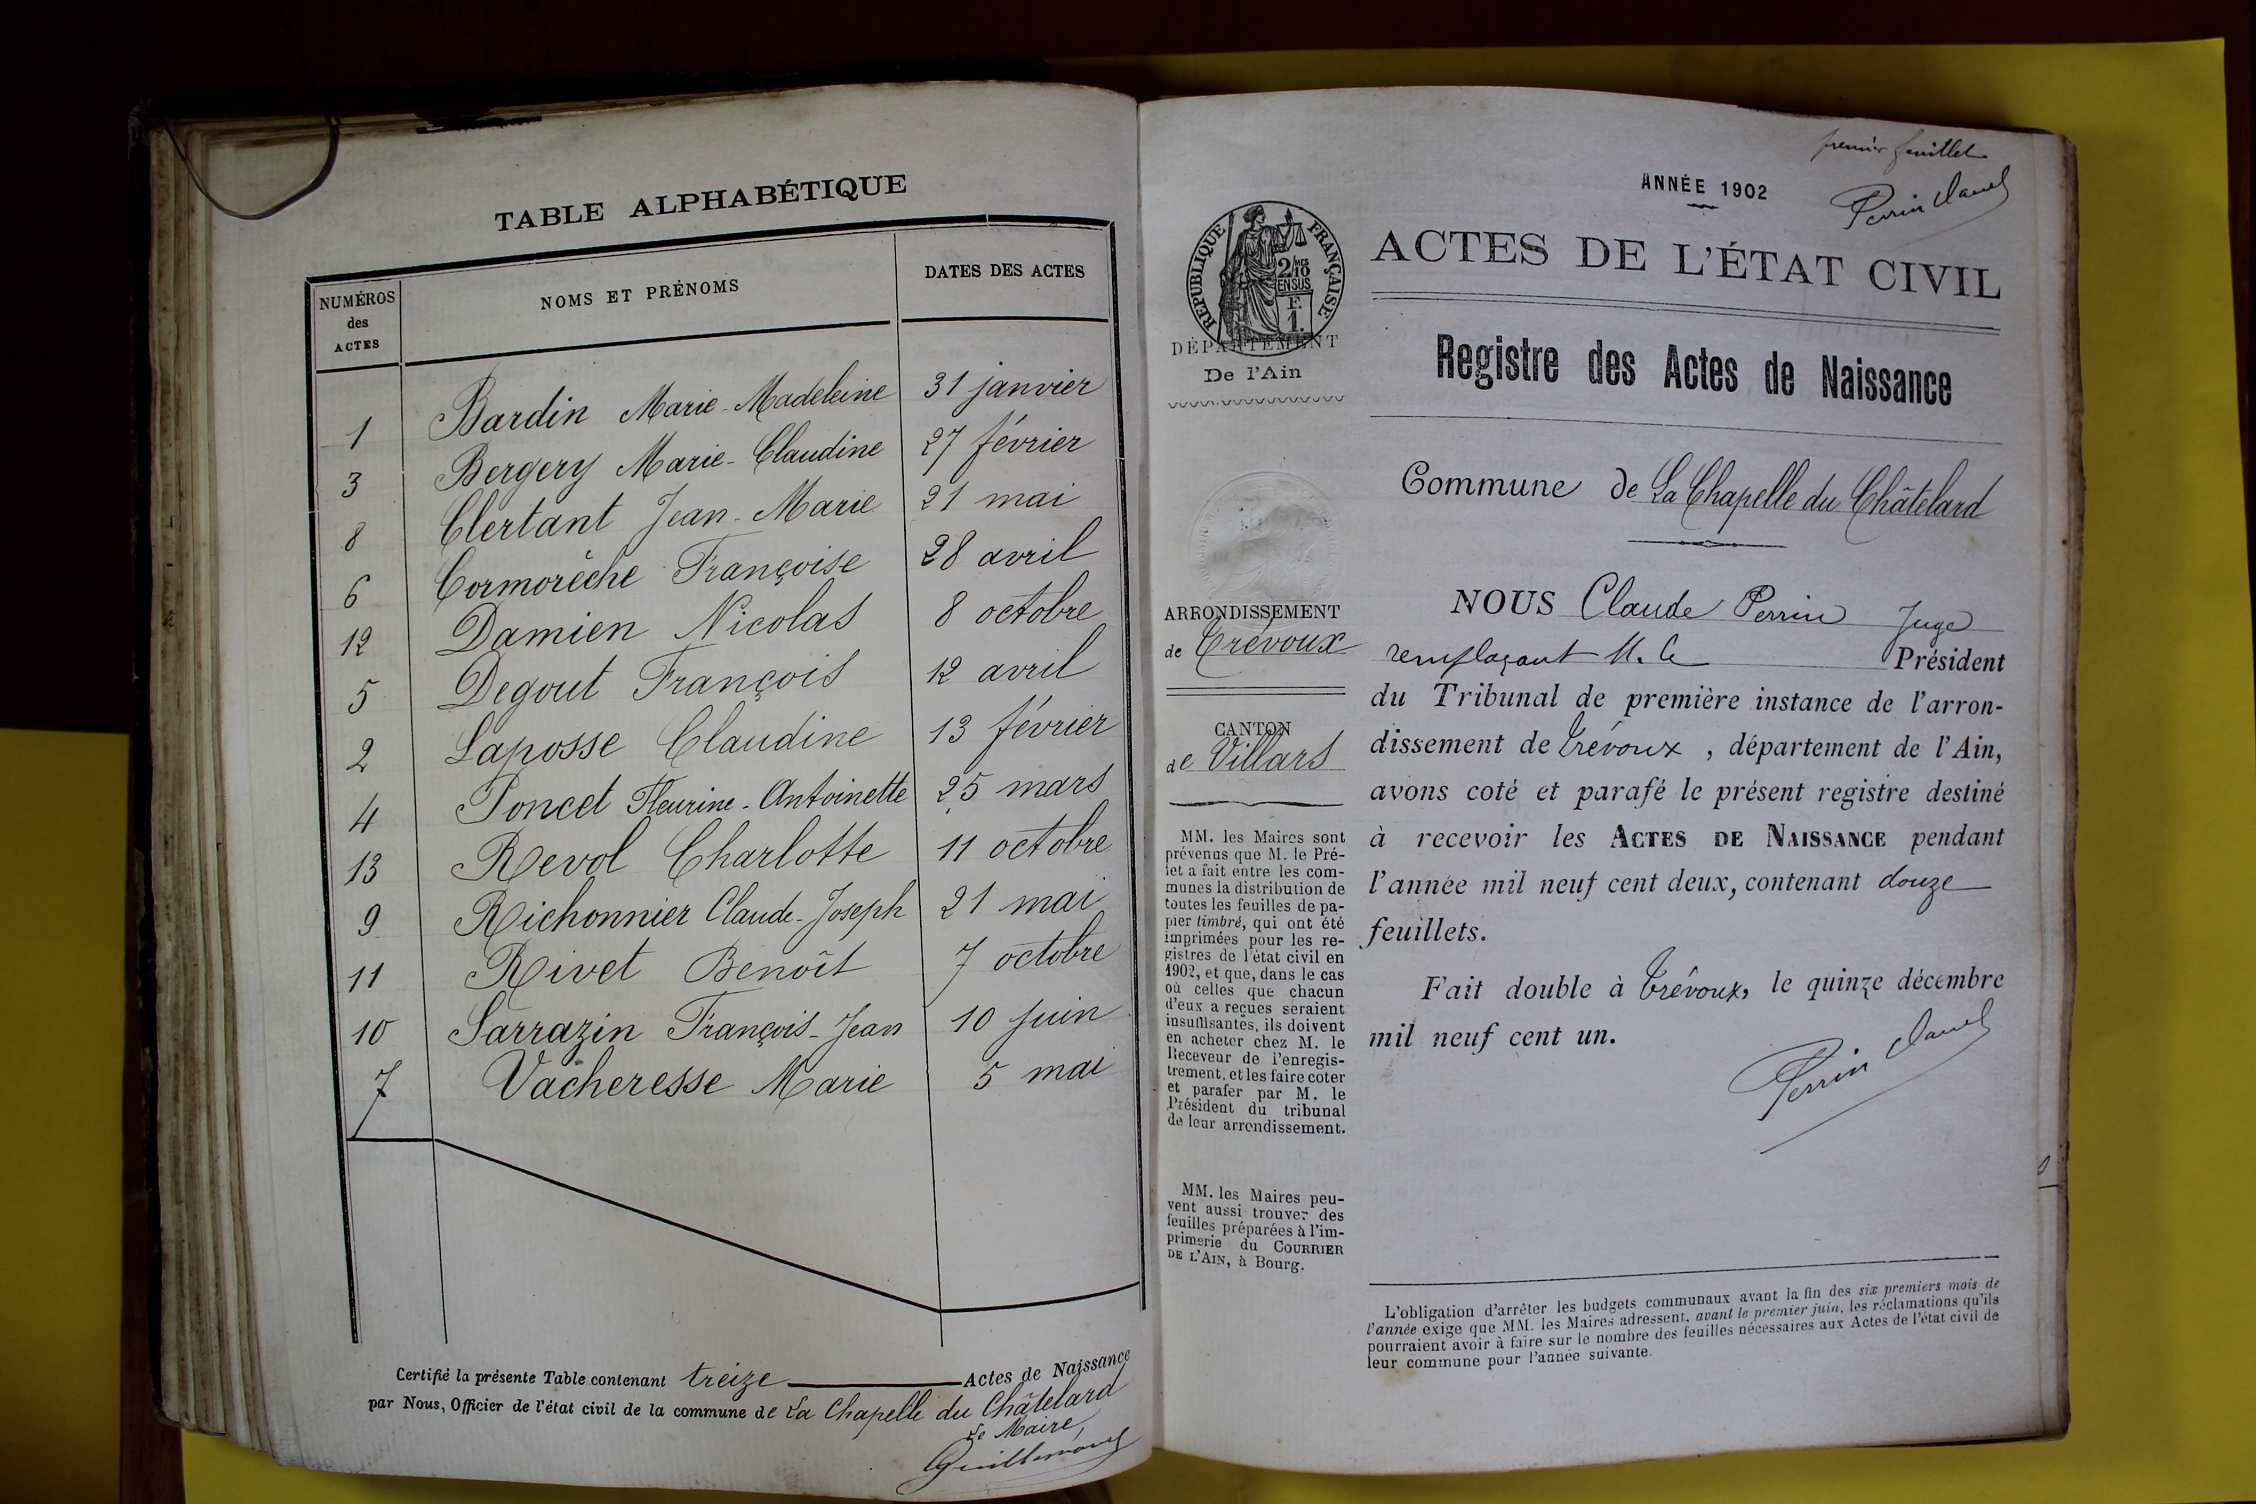 TABLE ALPHABÉTIQUE
NUMÉROS des ACTES
NOMS ET PRÉNOMS
DATES DES ACTES
1 Bardin Marie-Madeleine 31 janvier
3 Bergery Marie-Claudine 27 février
8 Clertant Jean-Marie 21 mai
6 Cormorèche Françoise 28 avril
12 Damien Nicolas 8 octobre
5 Degout François 12 avril
2 Laposse Claudine 13 février
4 Poncet Fleurine-Antoinette 25 mars
13 Revol Charlotte 11 octobre
9 Richonnier Claude-Joseph 21 mai
11 Rivet Benoît 7 octobre
10 Sarrazin François-Jean 10 juin
7 Vacheresse Marie 5 mai
Certifié la présente Table contenant treize Actes de Naissance
par Nous, Officier de l'état civil de la commune de La Chapelle du Châtelard
Le Maire,
premier feuillet
Perrin Claude
ANNÉE 1902
RÉPUBLIQUE FRANÇAISE
2 MES 10
EN SUS
F
1.
DÉPARTEMENT
De l'Ain
ARRONDISSEMENT
de Trévoux
CANTON
de Villars
MM. les Maires sont
prévenus que M. le Pré-
fet a fait entre les com-
munes la distribution de
toutes les feuilles de pa-
pier timbré, qui ont été
imprimées pour les re-
gistres de l'état civil en
1902, et que, dans le cas
où celles que chacun
d'eux a reçues seraient
insuffisantes, ils doivent
en acheter chez M. le
Receveur de l'enregis-
trement, et les faire coter
et parafer par M. le
Président du tribunal
de leur arrondissement.
MM. les Maires peu-
vent aussi trouver des
feuilles préparées à l'im-
primerie du COURRIER
DE L'AIN, à Bourg.
ACTES DE L'ÉTAT CIVIL
Registre des Actes de Naissance
Commune de La Chapelle du Châtelard
NOUS Claude Perrin Juge
remplaçant M. le Président
du Tribunal de première instance de l'arron-
dissement de Trévoux, département de l'Ain,
avons coté et parafé le présent registre destiné
à recevoir les ACTES DE NAISSANCE pendant
l'année mil neuf cent deux, contenant douze
feuillets.
Fait double à Trévoux, le quinze décembre
mil neuf cent un.
Perrin Claude
L'obligation d'arrêter les budgets communaux avant la fin des six premiers mois de
l'année exige que MM. les Maires adressent, avant le premier juin, les réclamations qu'ils
pourraient avoir à faire sur le nombre des feuilles nécessaires aux Actes de l'état civil de
leur commune pour l'année suivante.